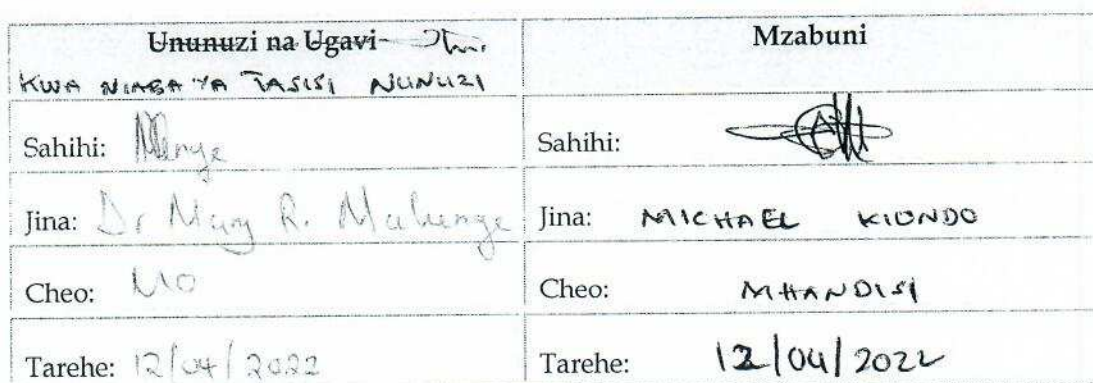 Ununuzi na Ugavi Mzabuni
KWA NIABA YA TASISI NUNUZI
Sahihi: Sahihi:
Jina: Dr Mary R. Mahenge Jina: MICHAEL KIONDO
Cheo: MO Cheo: MHANDISI
Tarehe: 12/04/2022 Tarehe: 12/04/2022